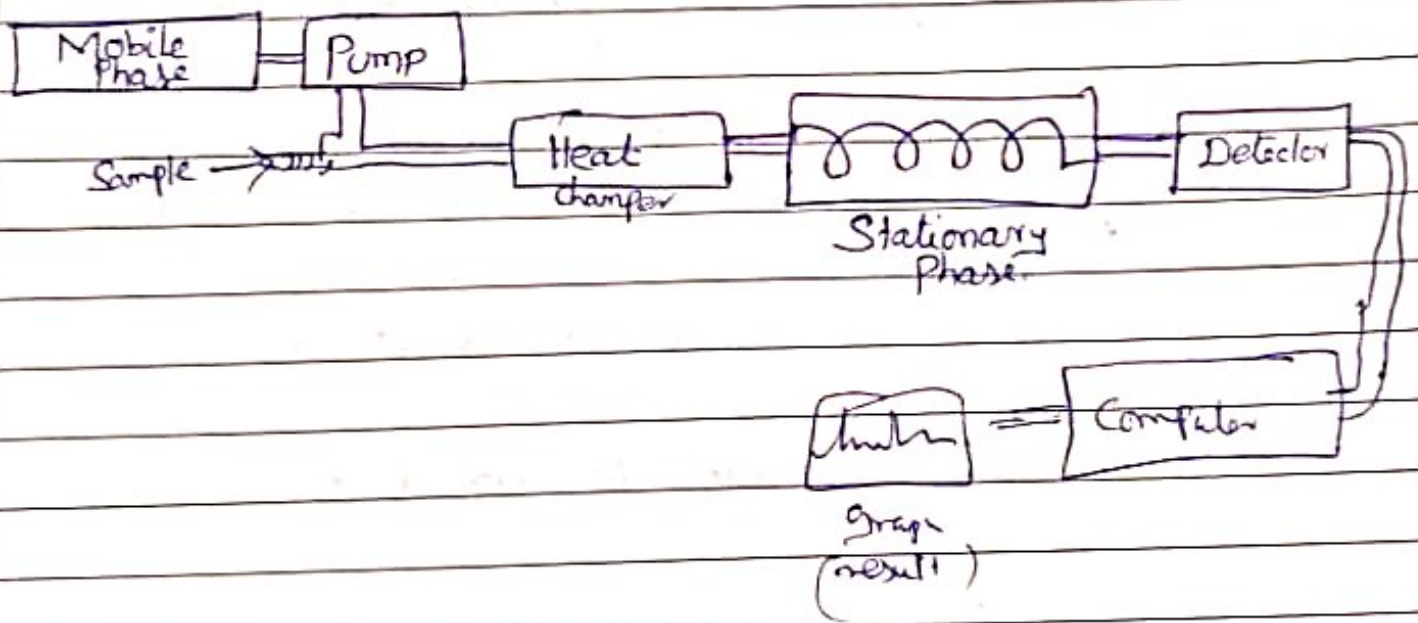 Mobile
Phase
Pump
Sample
Heat
champer
Stationary
Phase.
Detector
Computer
Graph
(result)